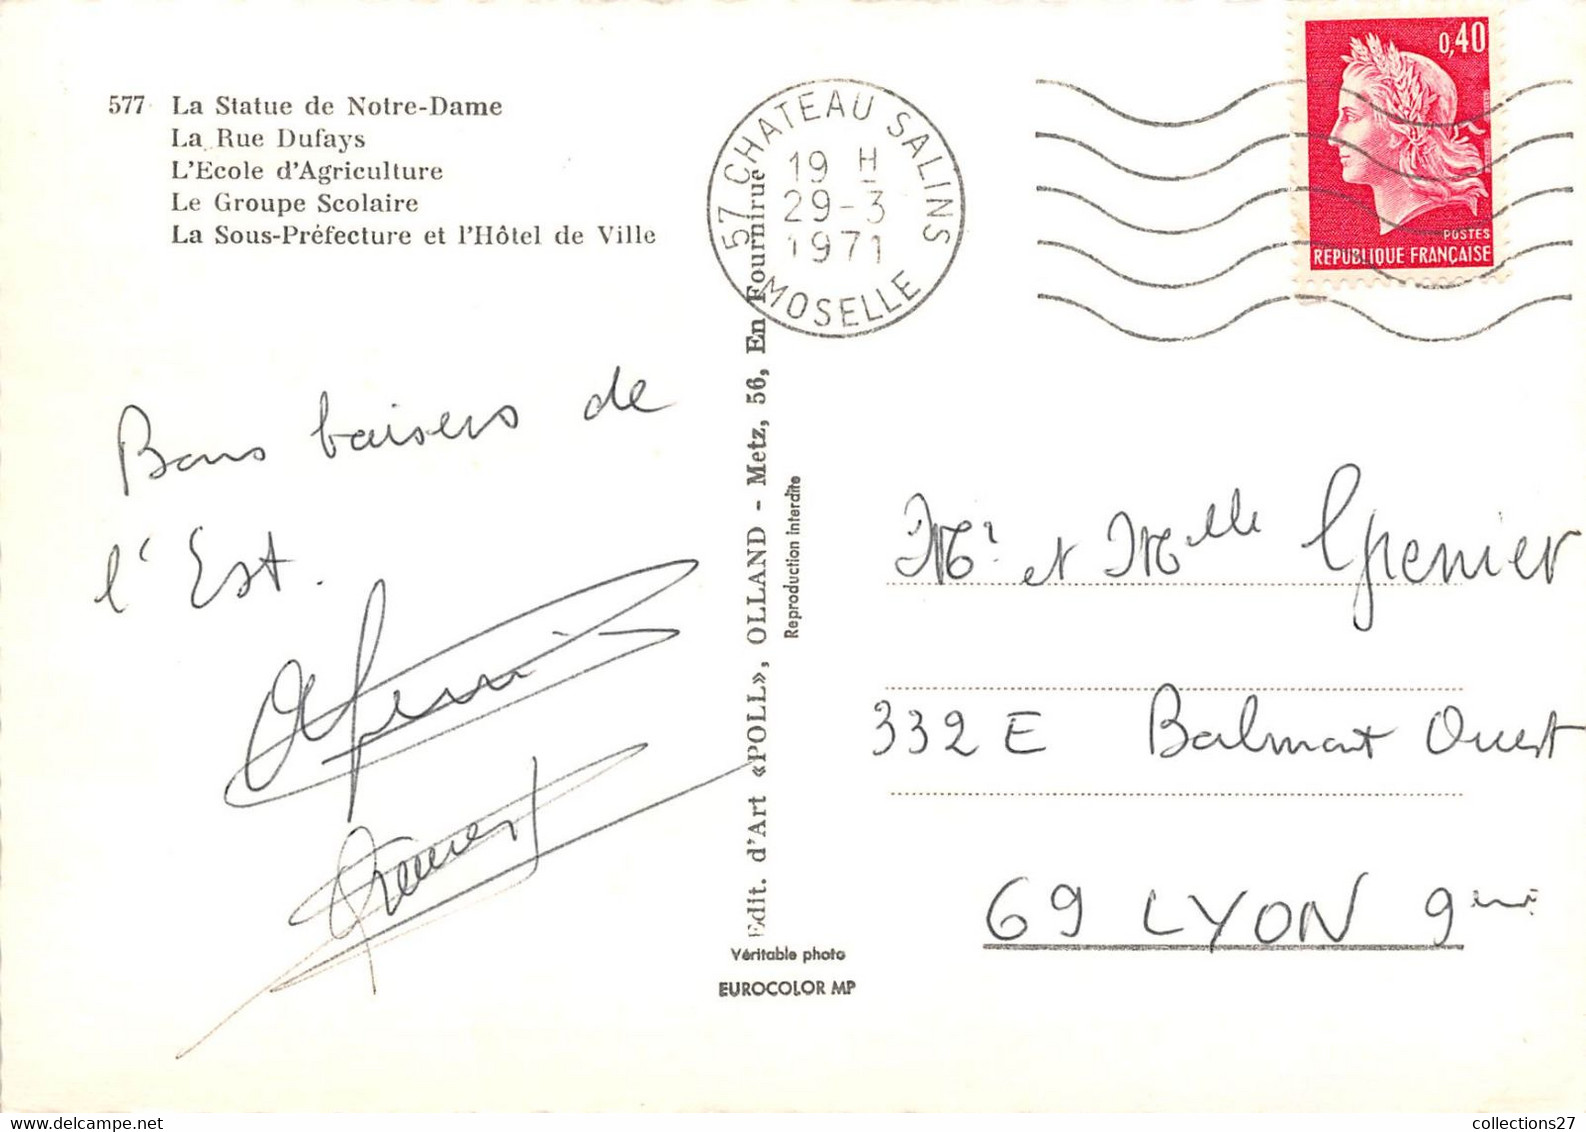 577 La Statue de Notre-Dame
La Rue Dufays
L'Ecole d'Agriculture
Le Groupe Scolaire
La Sous-Préfecture et l'Hôtel de Ville
57 CHATEAU SALINS
19 H
29-3
1971
MOSELLE
0,40
POSTES
REPUBLIQUE FRANÇAISE
Bons baisers de
l'Est.
Edit. d'Art «POLL», OLLAND - Metz, 56, En Fournirue
Reproduction interdite
Mr et Melle Grenier
332 E Balmont Ouest
69 LYON 9eme
Véritable photo
EUROCOLOR MP
http://www.delcampe.net
collections27